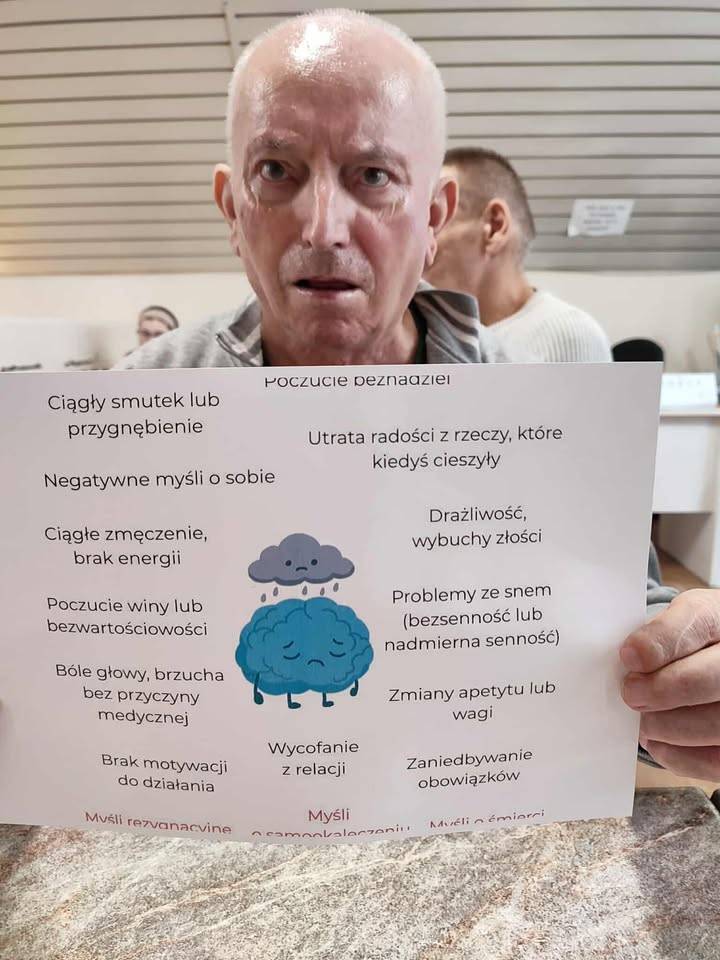 Poczucie beznadziei
Ciągły smutek lub
przygnębienie
Utrata radości z rzeczy, które
kiedyś cieszyły
Negatywne myśli o sobie
Drażliwość,
wybuchy złości
Ciągłe zmęczenie,
brak energii
Problemy ze snem
(bezsenność lub
nadmierna senność)
Poczucie winy lub
bezwartościowości
Bóle głowy, brzucha
bez przyczyny
medycznej
Zmiany apetytu lub
wagi
Wycofanie
z relacji
Brak motywacji
do działania
Zaniedbywanie
obowiązków
Myśli rezygnacyjne
Myśli
o samookaleczeniu
Myśli o śmierci